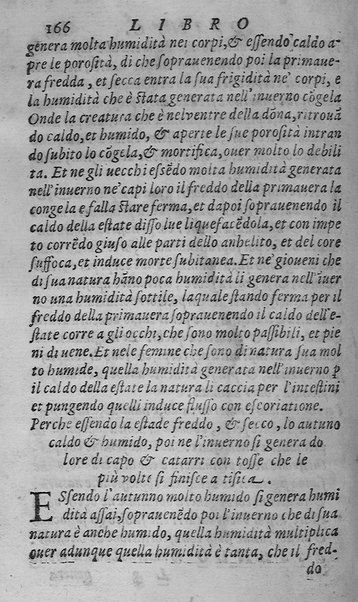 166 LIBRO
genera molta humidità nei corpi, & essendo caldo a-
pre le porosità, di che soprauenendo poi la primaue-
ra fredda, et secca entra la sua frigidità ne' corpi, e
la humidità che è stata generata nell'inuerno cõgela
Onde la creatura che è nel ventre della dõna, ritrouã
do caldo, et humido, & aperte le sue porosità intran
do subito lo cõgela, & mortifica, ouer molto lo debili
ta. Et ne gli uecchi essẽdo molta humidità generata
nell'inuerno ne' capi loro il freddo della primauera la
congela e falla stare ferma, et dapoi soprauenendo il
caldo della estate dissolue liquefacẽdola, et con impe
to corrẽdo giuso alle parti dello anhelito, et del core
suffoca, et induce morte subitanea. Et ne' gioueni che
di sua natura hãno poca humidità li genera nell'ĩuer
no una humidità sottile, laquale stando ferma per il
freddo della primauera soprauenendo il caldo dell'e-
state corre a gli occhi, che sono molto passibili, et pie
ni di uene. Et nele femine che sono di natura sua mol
to humide, quella humidità generata nell'inuerno p
il caldo della estate la natura li caccia per l'intestini
et pungendo quelli induce flusso con escoriatione.
Perche essendo la estade freddo, & secco, lo autuno
caldo & humido, poi ne l'inuerno si genera do
lore di capo & catarri con tosse che le
più volte si finisce a tisica.
ESsendo l'autunno molto humido si genera humi
dità assai, soprauenẽdo poi l'inuerno che di sua
natura è anche humido, quella humidità multiplica
ouer adunque quella humidità è tanta, che il fred-
do